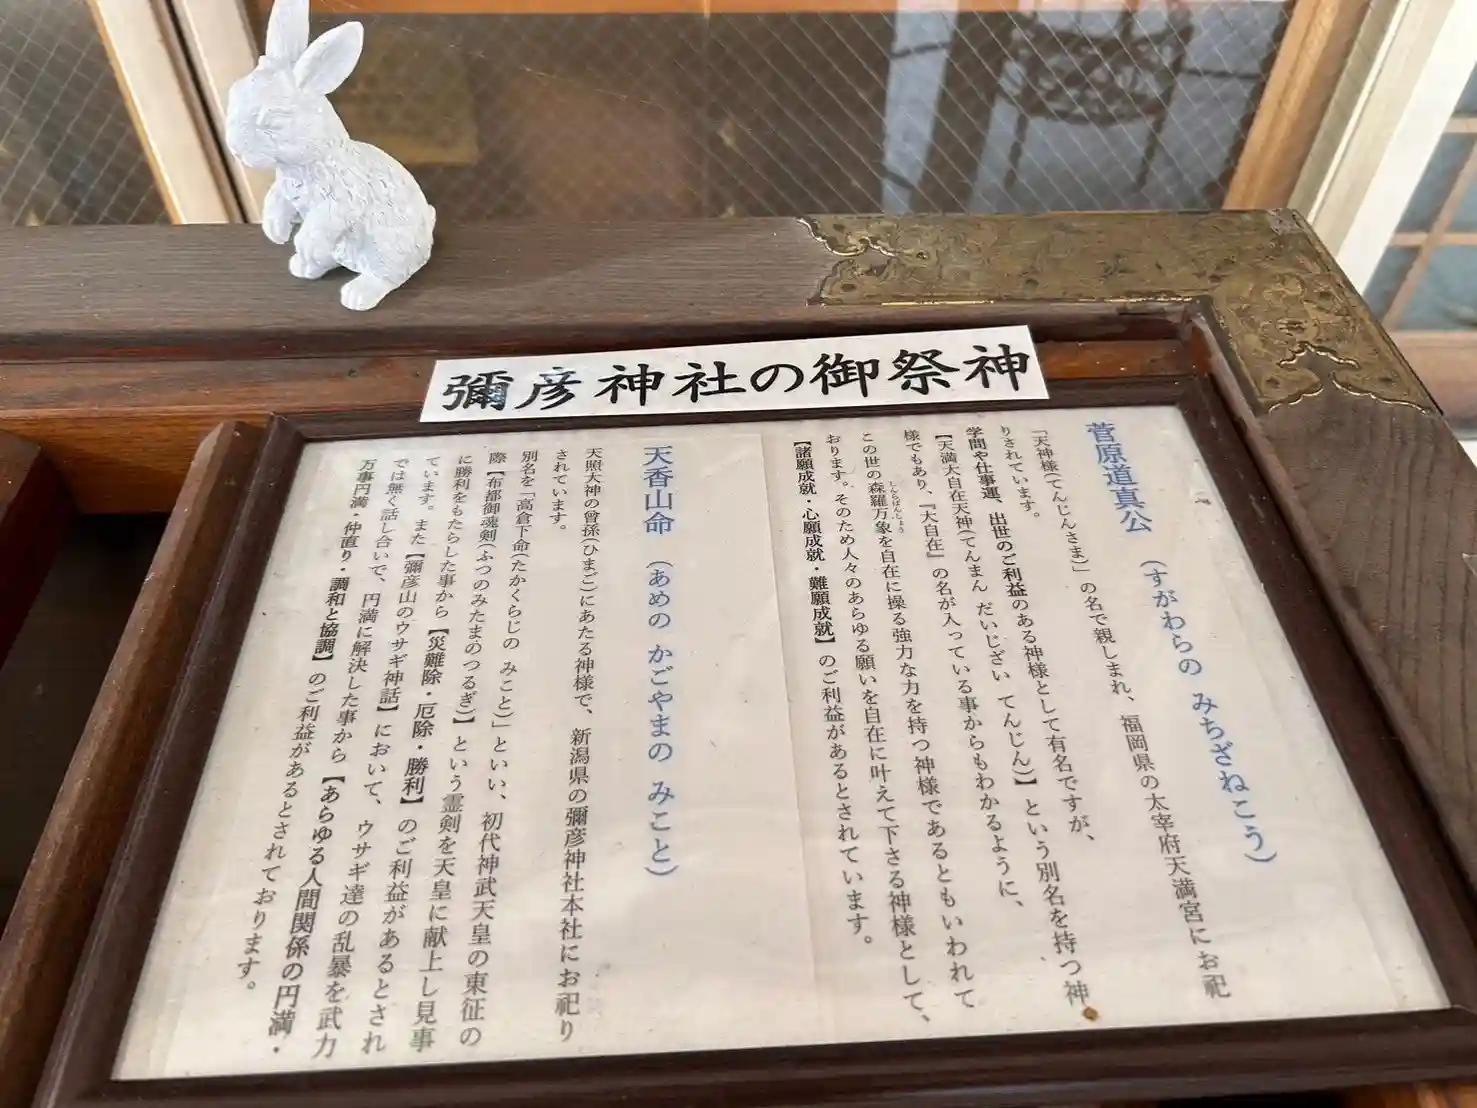 彌彦神社の御祭神
菅原道真公 (すがわらの みちざねこう)
「天神様(てんじんさま)」の名で親しまれ、福岡県の太宰府天満宮にお祀
りされています。
学問や仕事運、出世のご利益のある神様として有名ですが、
【天満大自在天神(てんまん だいじざい てんじん)】という別名を持つ神
様でもあり、『大自在』の名が入っている事からもわかるように、
この世の森羅万象を自在に操る強力な力を持つ神様であるともいわれて
しんらばんしょう
おります。そのため人々のあらゆる願いを自在に叶えて下さる神様として、
【諸願成就・心願成就・難願成就】のご利益があるとされています。
天香山命 (あめの かごやまの みこと)
天照大神の曾孫(ひまご)にあたる神様で、新潟県の彌彦神社本社にお祀り
されています。
別名を「高倉下命(たかくらじの みこと)」といい、初代神武天皇の東征の
際【布都御魂剣(ふつのみたまのつるぎ)】という霊剣を天皇に献上し見事
に勝利をもたらした事から【災難除・厄除・勝利】のご利益があるとされ
ています。また【彌彦山のウサギ神話】において、ウサギ達の乱暴を武力
では無く話し合いで、円満に解決した事から【あらゆる人間関係の円満・
万事円満・仲直り・調和と協調】のご利益があるとされております。